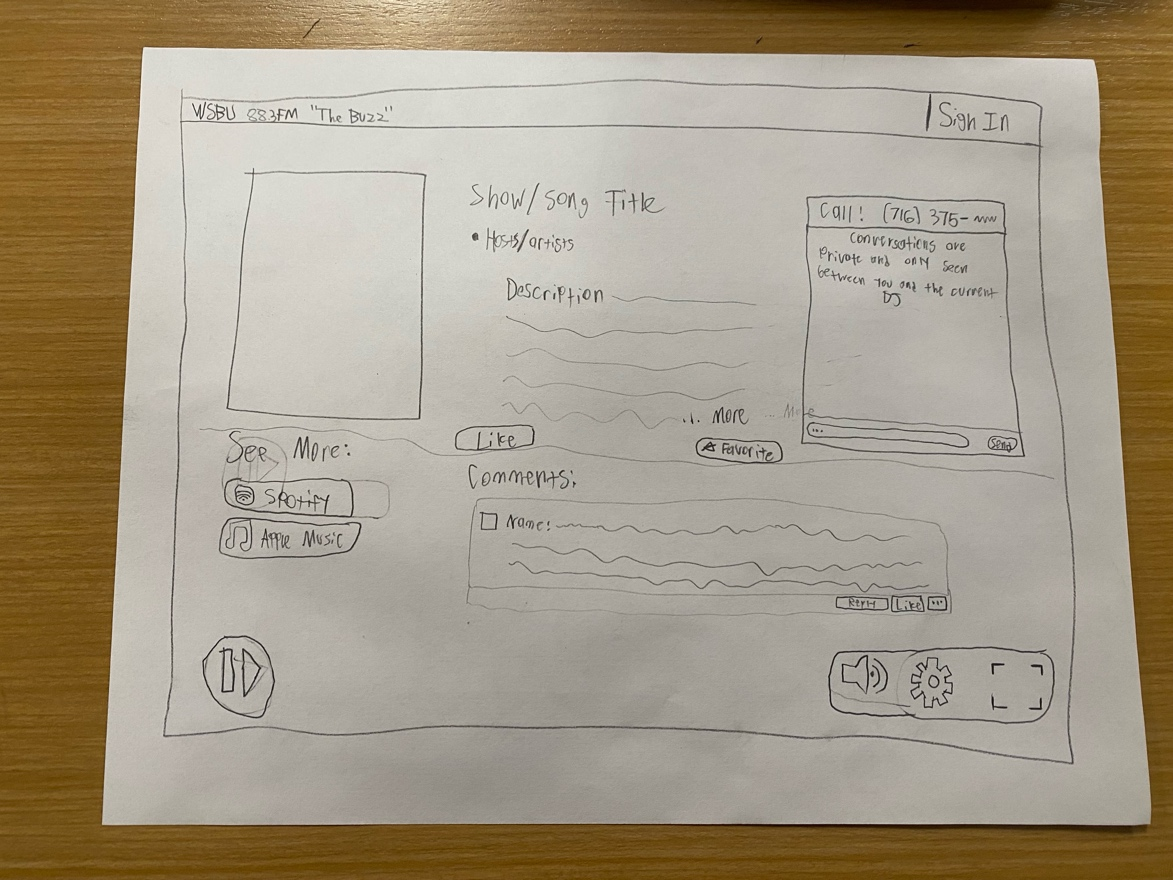 WSBU 88.3FM "The Buzz"
Sign In
Show/Song Title
• Hosts/artists
Description
... More
... More
Call! (716) 375-
Conversations are
Private and only seen
between you and the current
DJ
...
Send
Like
★ Favorite
See More:
Spotify
Apple Music
Comments:
Name:
Reply
Like
...